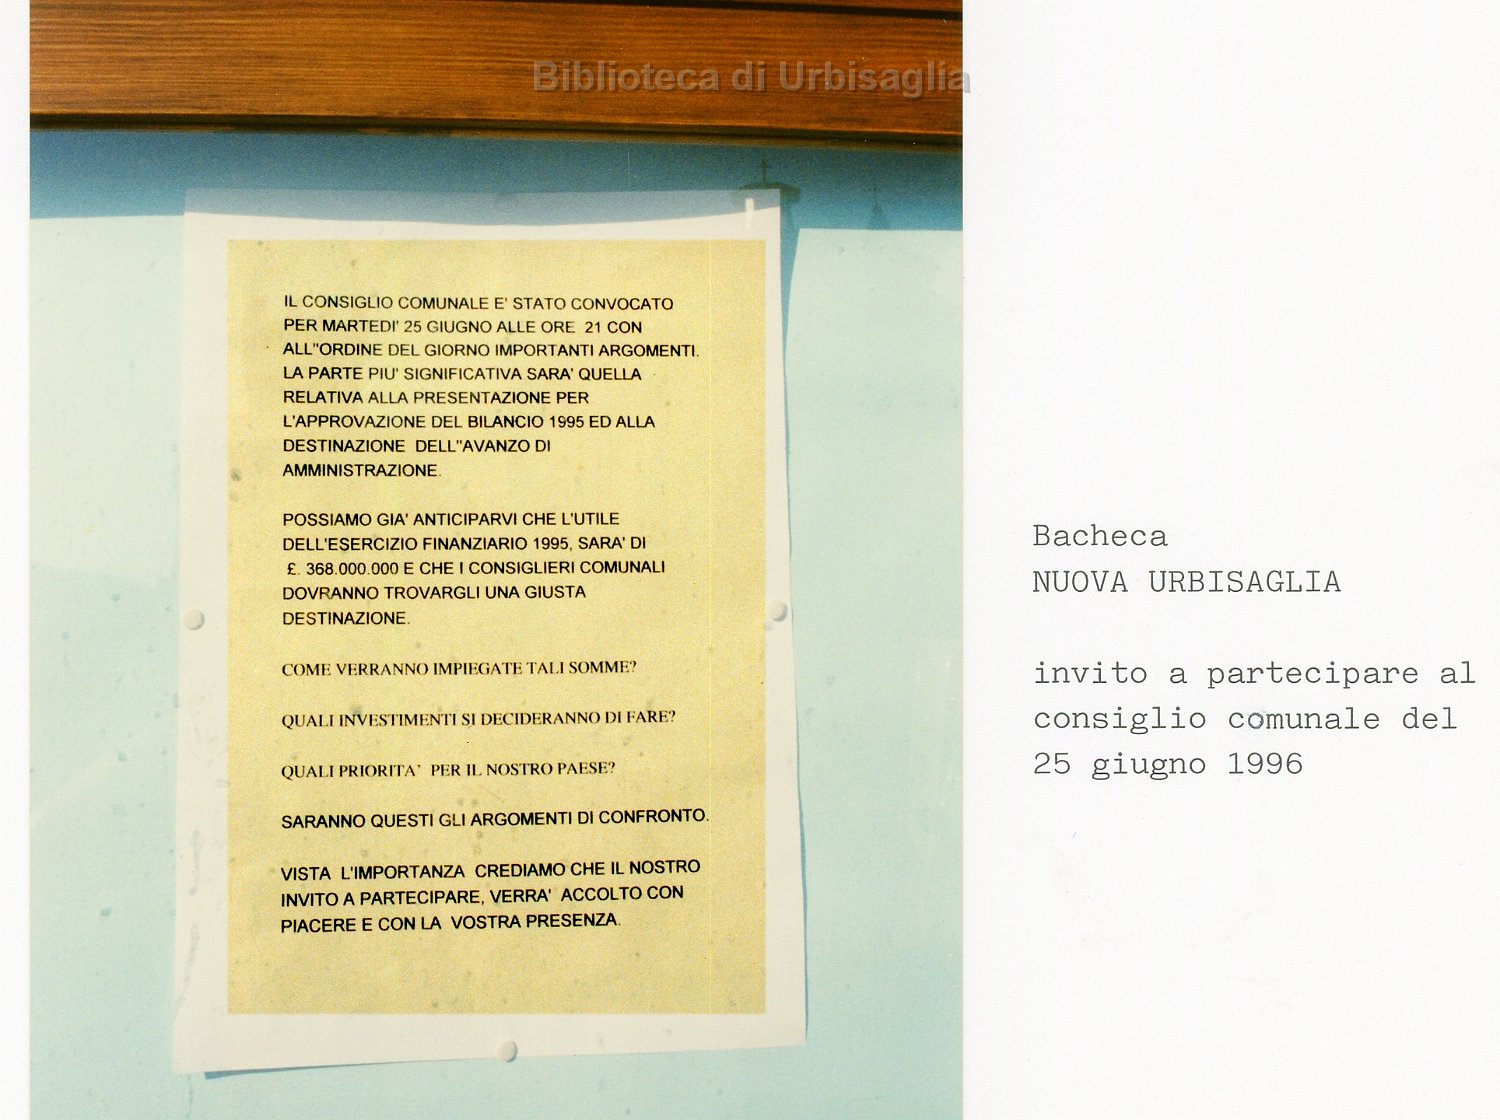 Biblioteca di Urbisaglia
IL CONSIGLIO COMUNALE E' STATO CONVOCATO
PER MARTEDI' 25 GIUGNO ALLE ORE 21 CON
ALL"ORDINE DEL GIORNO IMPORTANTI ARGOMENTI.
LA PARTE PIU' SIGNIFICATIVA SARA' QUELLA
RELATIVA ALLA PRESENTAZIONE PER
L'APPROVAZIONE DEL BILANCIO 1995 ED ALLA
DESTINAZIONE DELL"AVANZO DI
AMMINISTRAZIONE.
POSSIAMO GIA' ANTICIPARVI CHE L'UTILE
DELL'ESERCIZIO FINANZIARIO 1995, SARA' DI
£. 368.000.000 E CHE I CONSIGLIERI COMUNALI
DOVRANNO TROVARGLI UNA GIUSTA
DESTINAZIONE.
COME VERRANNO IMPIEGATE TALI SOMME?
QUALI INVESTIMENTI SI DECIDERANNO DI FARE?
QUALI PRIORITA` PER IL NOSTRO PAESE?
SARANNO QUESTI GLI ARGOMENTI DI CONFRONTO.
VISTA L'IMPORTANZA CREDIAMO CHE IL NOSTRO
INVITO A PARTECIPARE, VERRA' ACCOLTO CON
PIACERE E CON LA VOSTRA PRESENZA.
Bacheca
NUOVA URBISAGLIA
invito a partecipare al
consiglio comunale del
25 giugno 1996